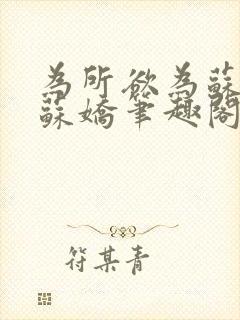 為所欲為蘇
蘇嬌筆趣閣
符某青